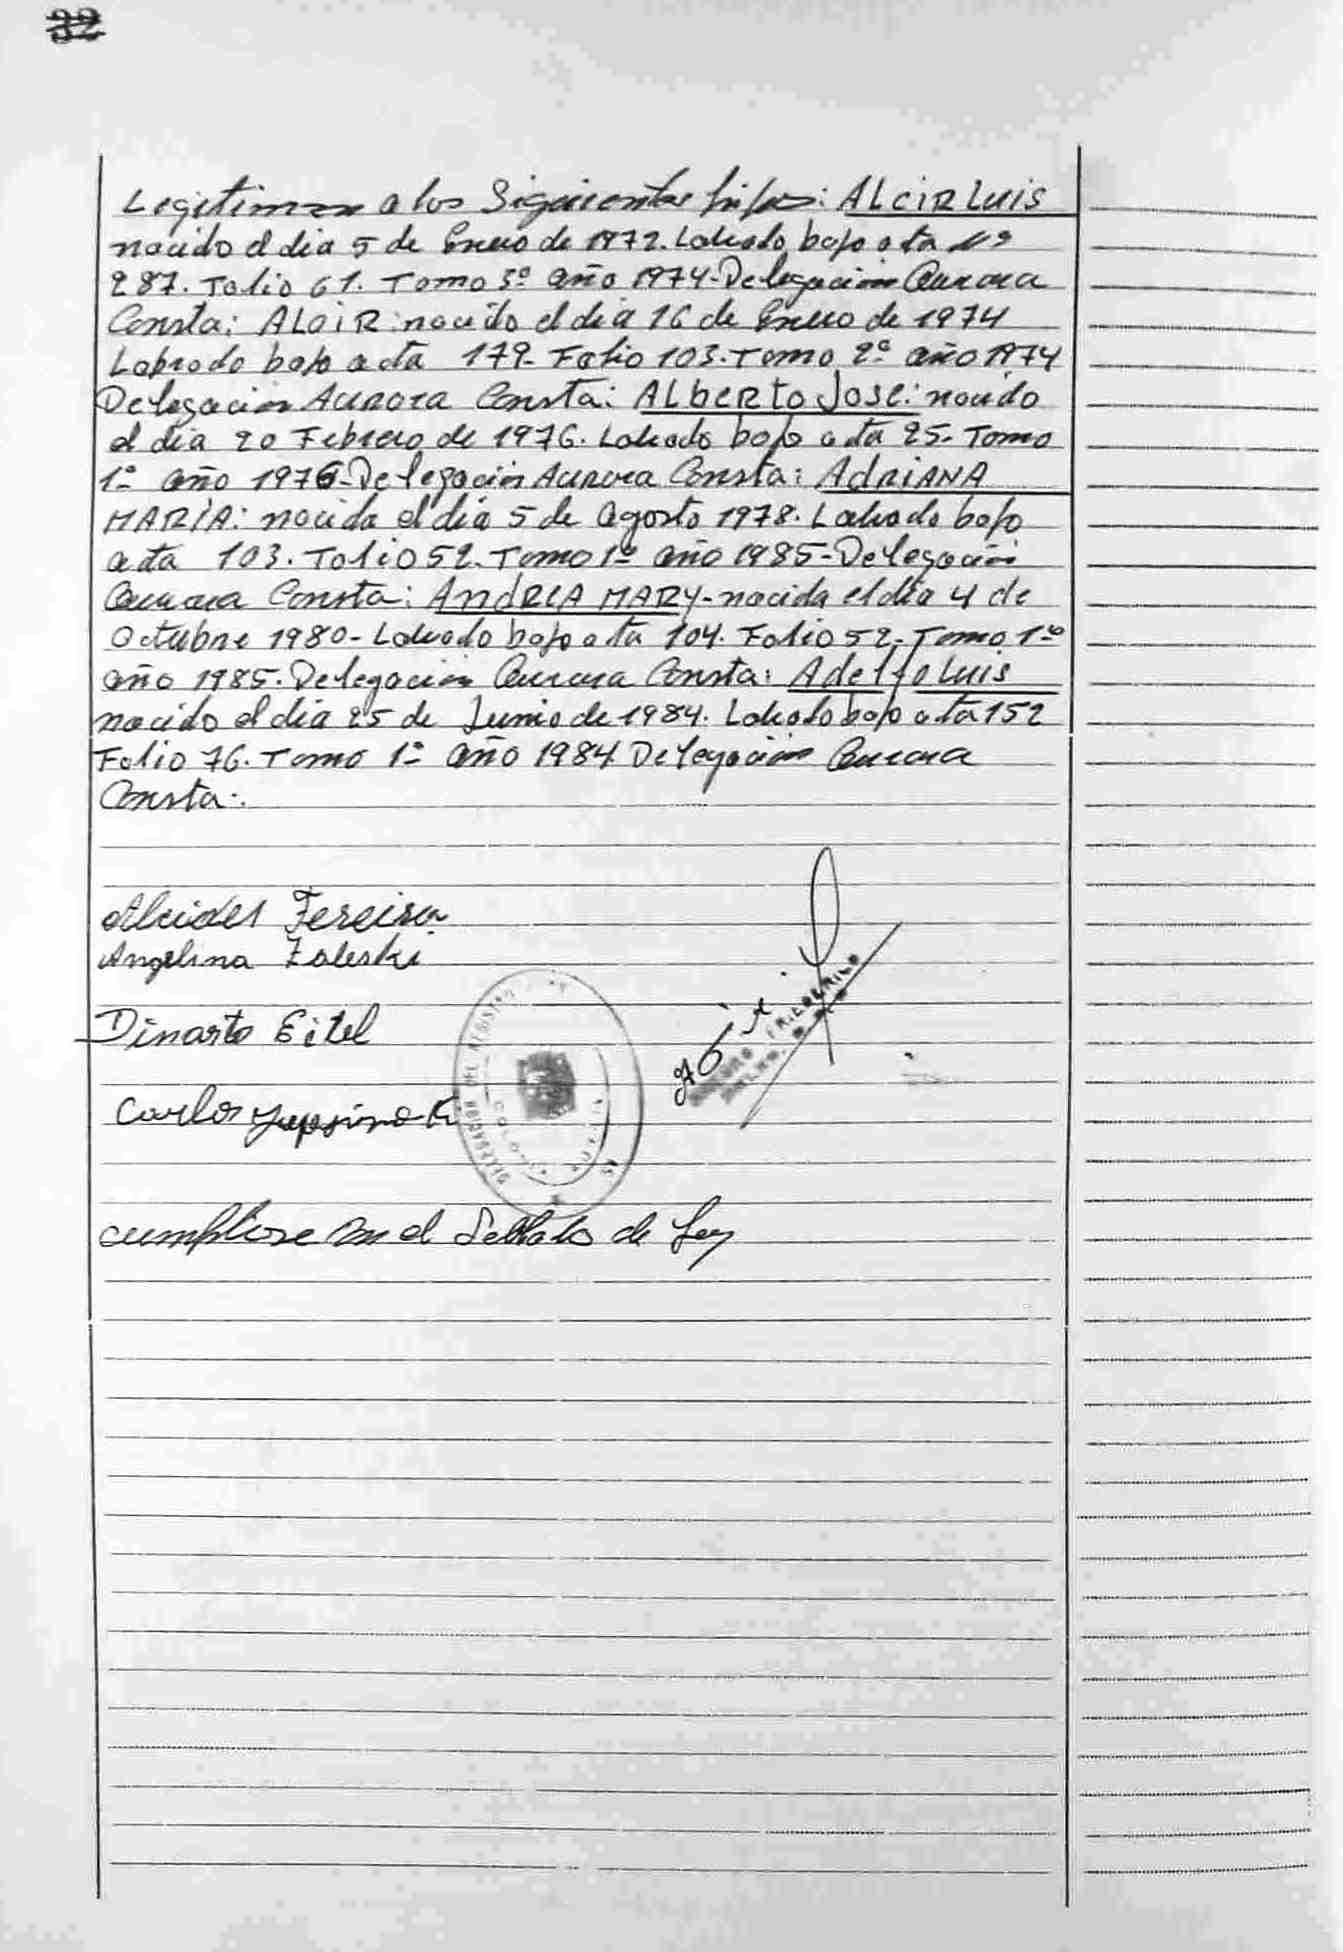 32
Legitiman a los Siguientes hijos: ALCIR LUIS
nacido el dia 5 de Enero de 1972. Labrado bajo acta Nº
287. Folio 61. Tomo 3º año 1974-Delegación Aurora
Consta: ALOIR: nacido el dia 16 de Enero de 1974
Labrado bajo acta 179- Folio 103. Tomo 2º año 1974
Delegación Aurora Consta: ALBERTO JOSE: nacido
el dia 20 Febrero de 1976. Labrado bajo acta 25- Tomo
1º año 1976-Delegación Aurora Consta: ADRIANA
MARIA: nacida el dia 5 de Agosto 1978. Labrado bajo
acta 103. Folio 52. Tomo 1º año 1985-Delegación
Aurora Consta: ANDREA MARY-nacida el dia 4 de
Octubre 1980- Labrado bajo acta 104. Folio 52- Tomo 1º
año 1985. Delegación Aurora Consta: Adelfo Luis
nacido el dia 25 de Junio de 1984. Labrado bajo acta 152
Folio 76. Tomo 1º año 1984 Delegación Aurora
Consta-.
Alcides Fereira
Angelina Zaleski
Dinarto Eitel
Carlos
DELEGACION DEL REGISTRO
COLONIA
cumpliose en el Sellado de Ley